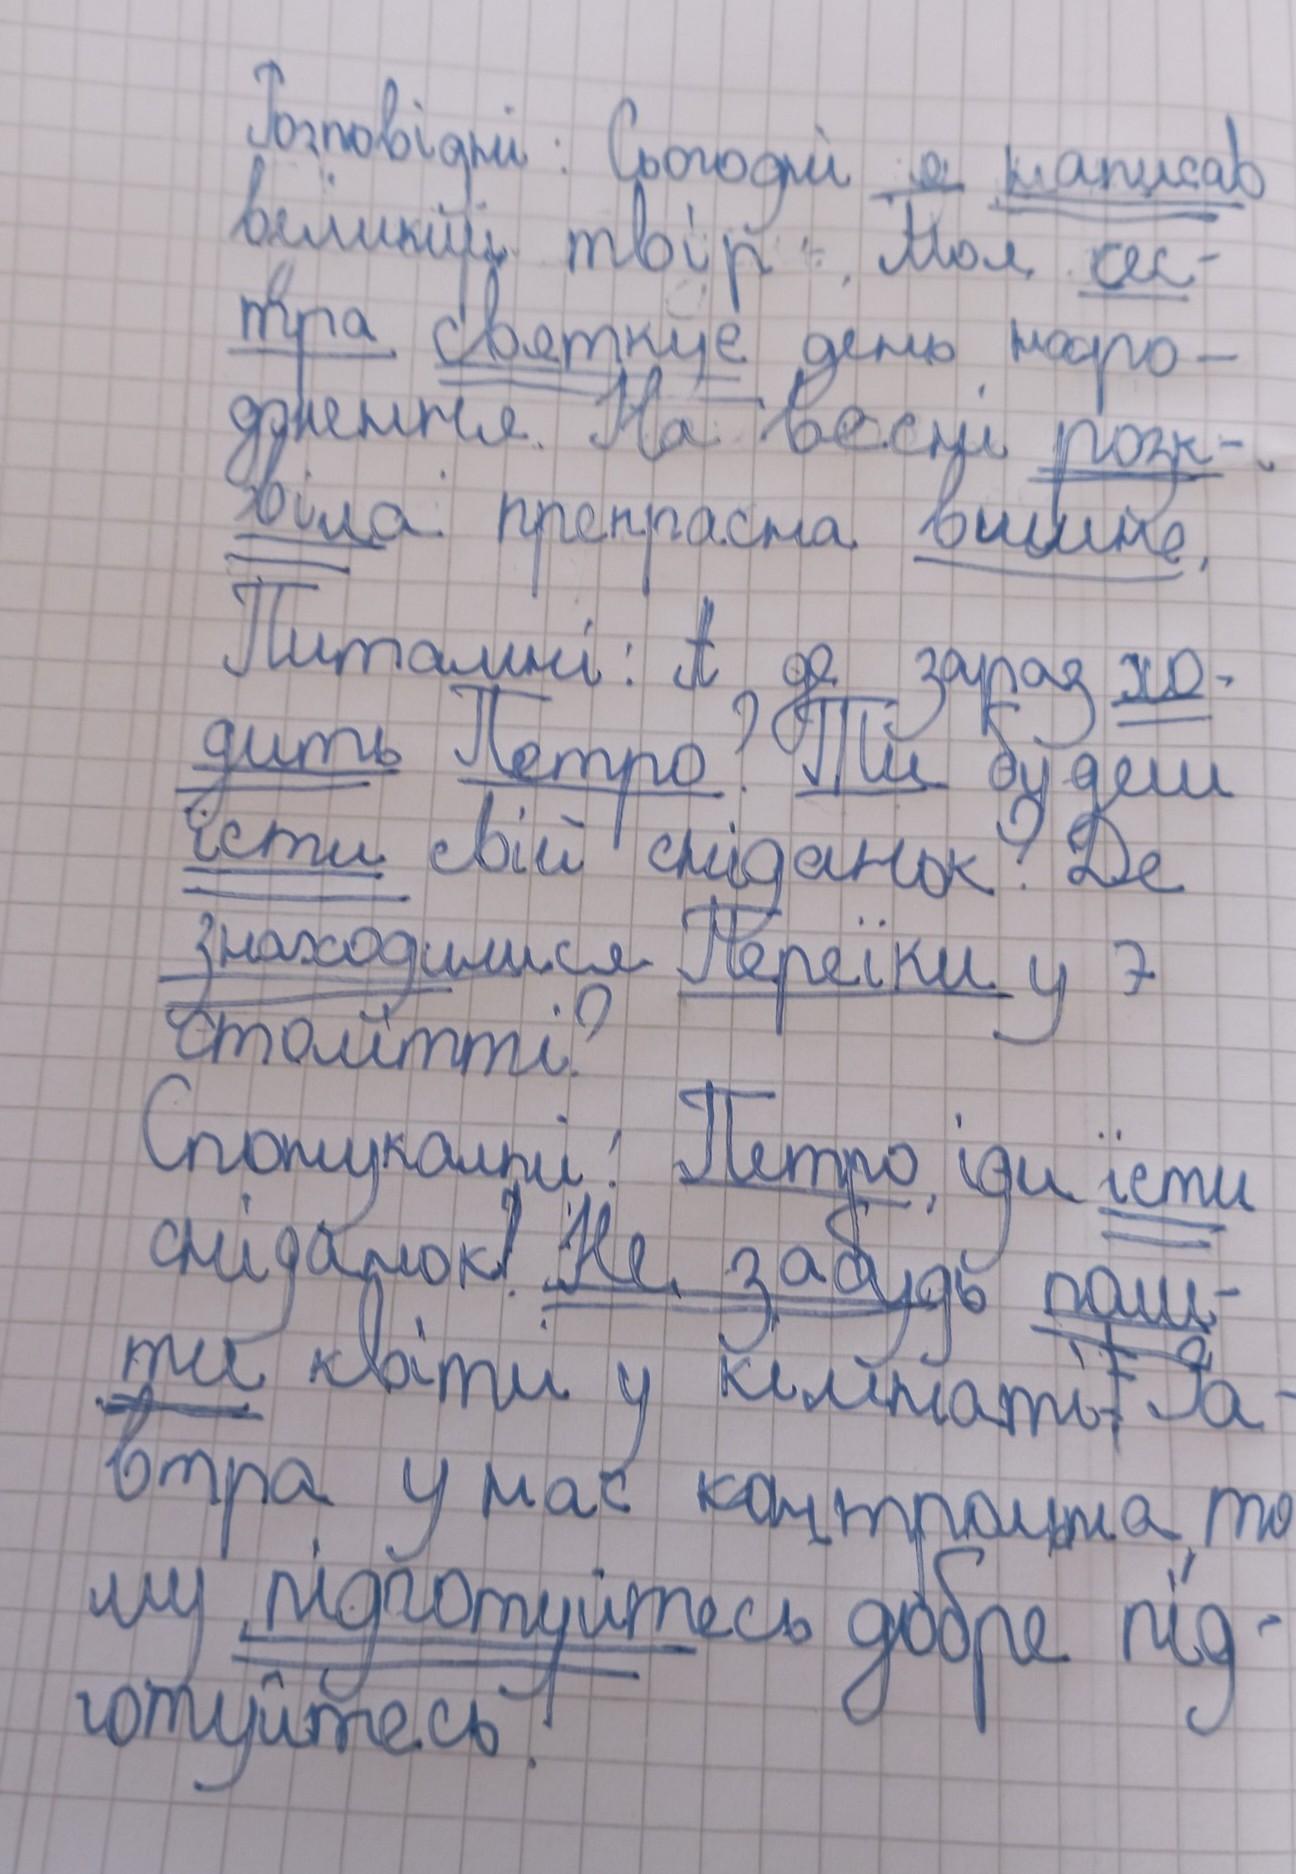 Розповідні: Сьогодні я написав
великий твір. Моя сес-
тра святкує день наро-
дження. На весні розк-
віла прекрасна вишня.
Питальні: А де зараз хо-
дить Петро? Ти будеш
їсти свій сніданок? Де
знаходился у
столітті?
Спонукальні: Петро, іди їсти
сніданок! Не забудь
квіти у кімнаті! За-
втра у нас контрольна, то
му підготуйтесь добре під-
готуйтесь!